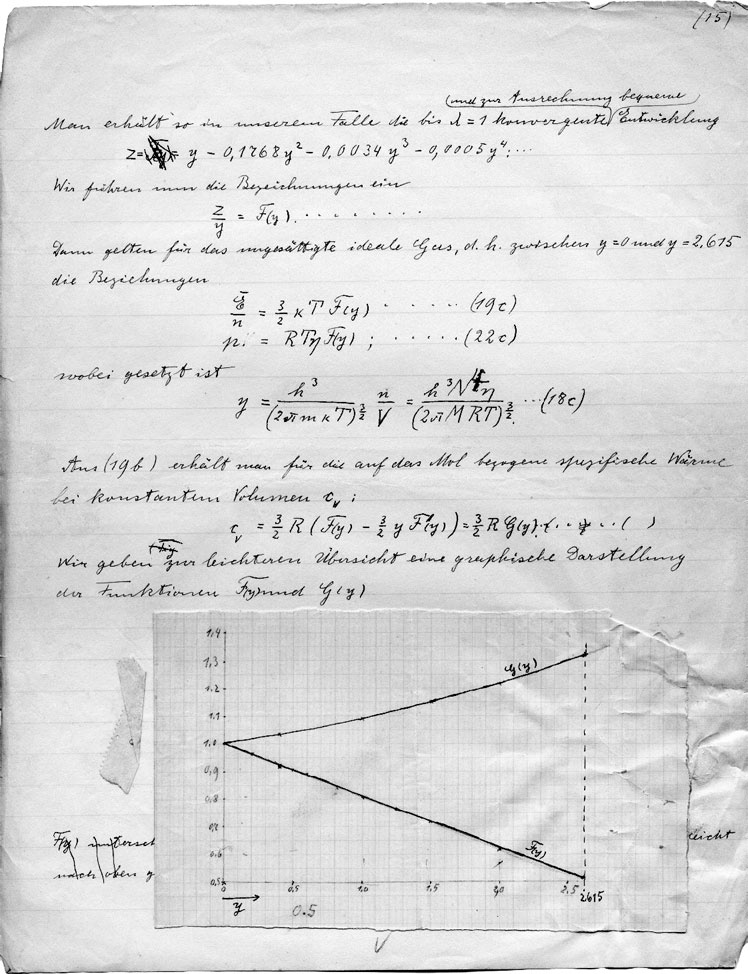 (15)
(und zur Ausrechnung bequeme)
Man erhält so in unserem Falle die bis λ = 1 konvergente Entwicklung
z = y - 0,1768 y² - 0,0034 y³ - 0,0005 y⁴ ....
Wir führen nun die Bezeichnungen ein
z/y = F(y) . . . . . . . .
Dann gelten für das ungesättigte ideale Gas, d. h. zwischen y=0 und y=2,615
die Beziehungen
Ē/n = 3/2 κT F(y) . . . . . (19c)
p. = RTη F(y) ; . . . . . (22c)
wobei gesetzt ist
y = h³/(2πmκT)^3/2 n/V = h³N⁴η/(2πMRT)^3/2 ... (18c)
Aus (19b) erhält man für die auf das Mol bezogene spezifische Wärme
bei konstantem Volumen cᵥ :
cᵥ = 3/2 R (F(y) - 3/2 y F'(y)) = 3/2 R G(y) . . . . . ( )
(Fig
Wir geben zur leichteren Übersicht eine graphische Darstellung
der Funktionen F(y) und G(y)
1.4
1,3
1.2
1.1
1.0
0,9
0.8
0.7
0.6
0.5
G(y)
F(y)
0
0.5
1.0
1.5
2,0
2.5
2.615
y
0.5
F(y) untersch
leicht
nach oben g